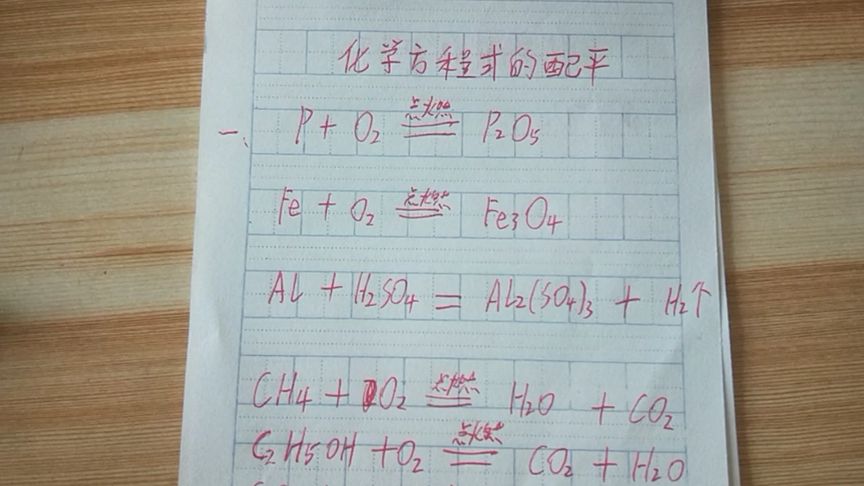 化学方程式的配平
一、 P + O₂ 点燃 ═ P₂O₅
Fe + O₂ 点燃 ═ Fe₃O₄
Al + H₂SO₄ = Al₂(SO₄)₃ + H₂↑
CH₄ + O₂ 点燃 ═ H₂O + CO₂
C₂H₅OH + O₂ 点燃 ═ CO₂ + H₂O